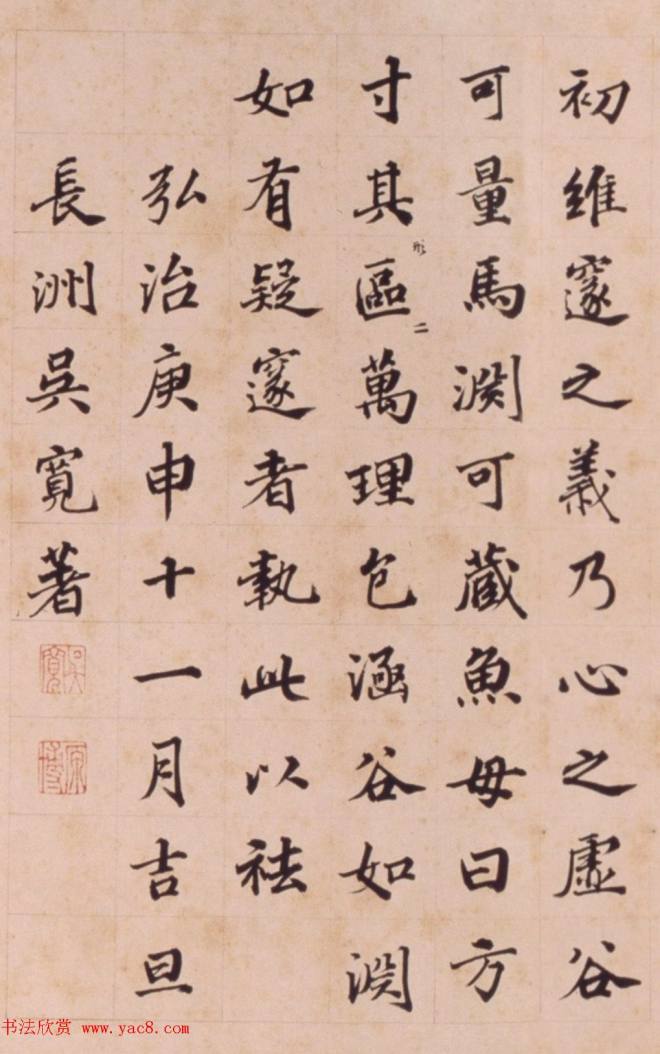 初維邃之義乃心之虛谷
可量馬淵可藏魚毋曰方
寸其區萬理包涵谷如淵
形二
如有疑邃者執此以祛
弘治庚申十一月吉旦
長洲吳寬著
吳寬
原博
书法欣赏 www.yac8.com